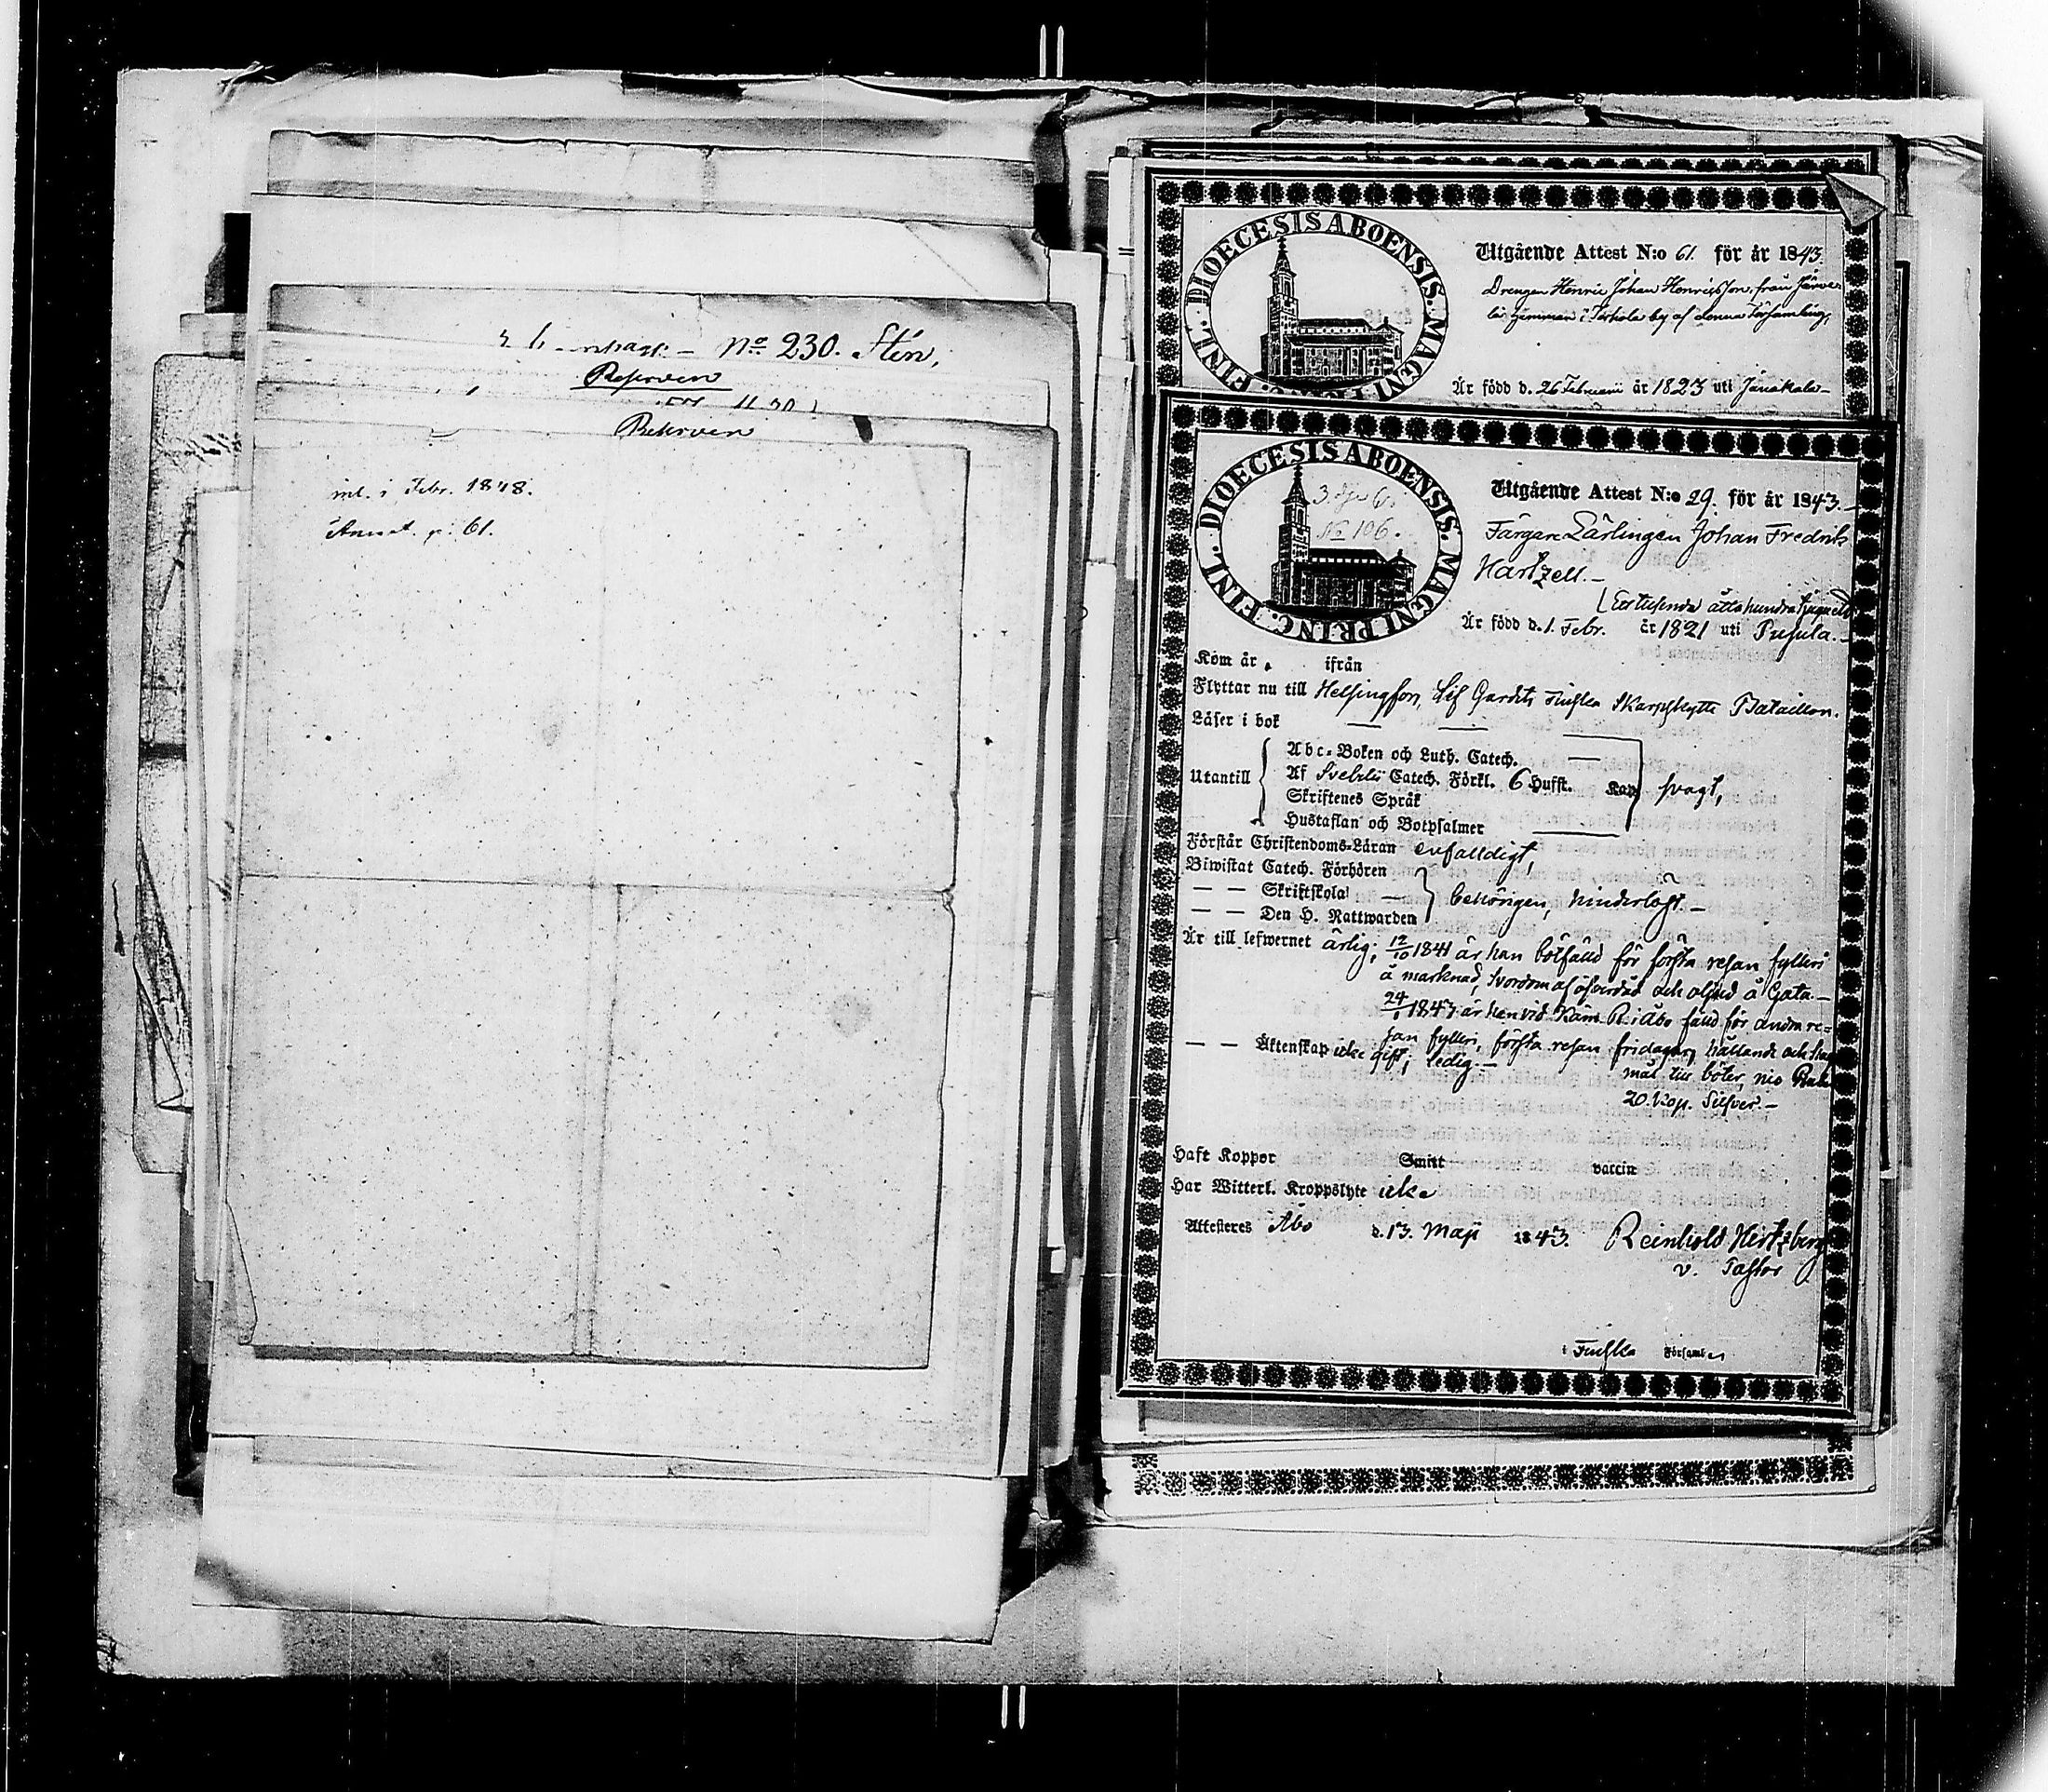 No 230. Sten,
Reserven
Reserven
inl. i Febr. 1848.
Annot. p. 61.
DIOECESIS ABOENSIS. MAGNI PRINC. FINL.
Utgående Attest N:o 61. för år 1843
Drengen Henric Johan Henricsson, från Järve-
lä hemman i Torkola by af denna Församling,
Är född d. 26 Februarii år 1823 uti Janakala
DIOECESIS ABOENSIS. MAGNI PRINC. FINL.
No 106.
Utgående Attest N:o 29. för år 1843.
Färgare Lärlingen Johan Fredrik
Hartzell.
(Ettusende åtta hundra tjuguett
Är född d. 1. Febr. år 1821 uti Pusula.
Kom år ifrån
Flyttar nu till Helsingfors, Lif Gardets Finska Skarpskytte Bataillon.
Läser i bok
Utantill
Abc-Boken och Luth. Catech.
Af Svebilii Catech. Förkl. 6 Hufst. Kap
Skriftenes Språk
Hustaflan och Botpsalmer
svagt,
Förstår Christendoms-Läran enfaldigt,
Biwistat Catech. Förhören
— — Skriftskola
— — Den H. Nattwarden
behörigen, hinderlöst.
Är till lefwernet ärlig; 12/10 1841 är han bötfälld för första resan fylleri
å marknad, svordom af öfverdåd och oljud å Gata.
24/1 1843 är han vid Käm. R. i Åbo fälld för andra re-
san fylleri, första resan fridagars hållande och
— — Äktenskap icke gift; ledig.
mål till böter, nio Rub.
20. Kop. Silfver.
Haft Koppor Smitt vaccin
Har Witterl. Kroppslyte icke
Attesteres Åbo d. 13. Maji 1843. Reinhold Hertzberg
v. Pastor
i Finska Församl